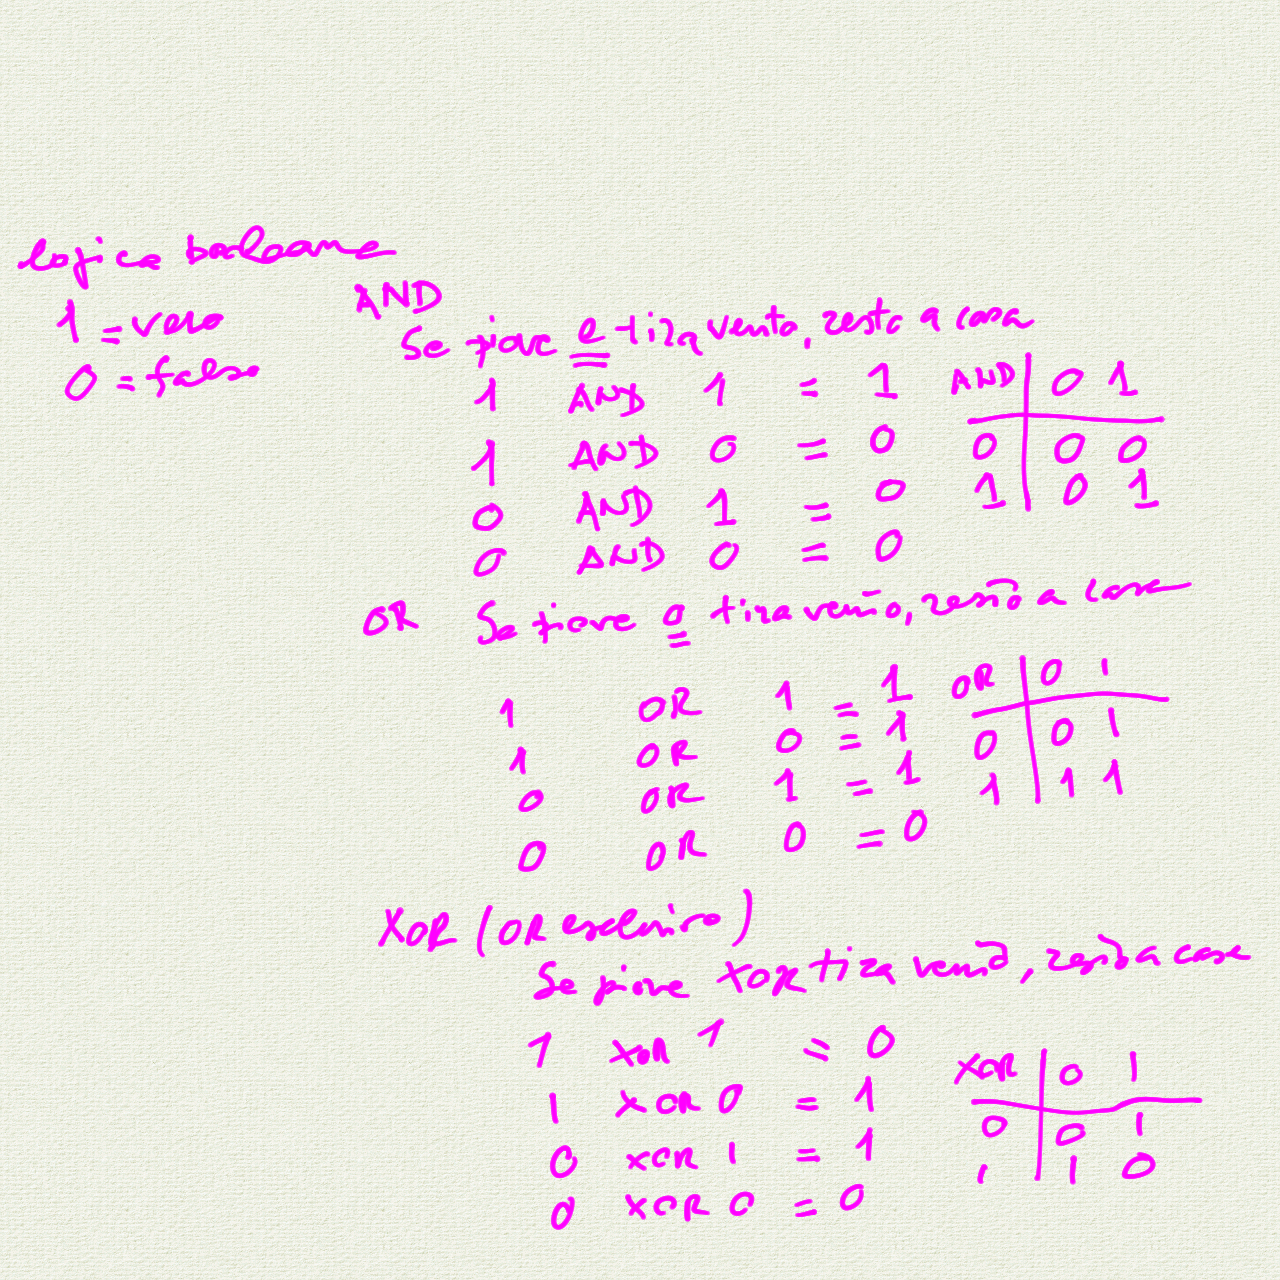 logica booleana
1 = vero
0 = falso
AND
Se piove e tira vento, resto a casa
1 AND 1 = 1
1 AND 0 = 0
0 AND 1 = 0
0 AND 0 = 0
AND 0 1
0 0 0
1 0 1
OR Se piove o tira vento, resto a casa
1 OR 1 = 1
1 OR 0 = 1
0 OR 1 = 1
0 OR 0 = 0
OR 0 1
0 0 1
1 1 1
XOR (OR esclusivo)
Se piove XOR tira vento, resto a casa
1 XOR 1 = 0
1 XOR 0 = 1
0 XOR 1 = 1
0 XOR 0 = 0
XOR 0 1
0 0 1
1 1 0